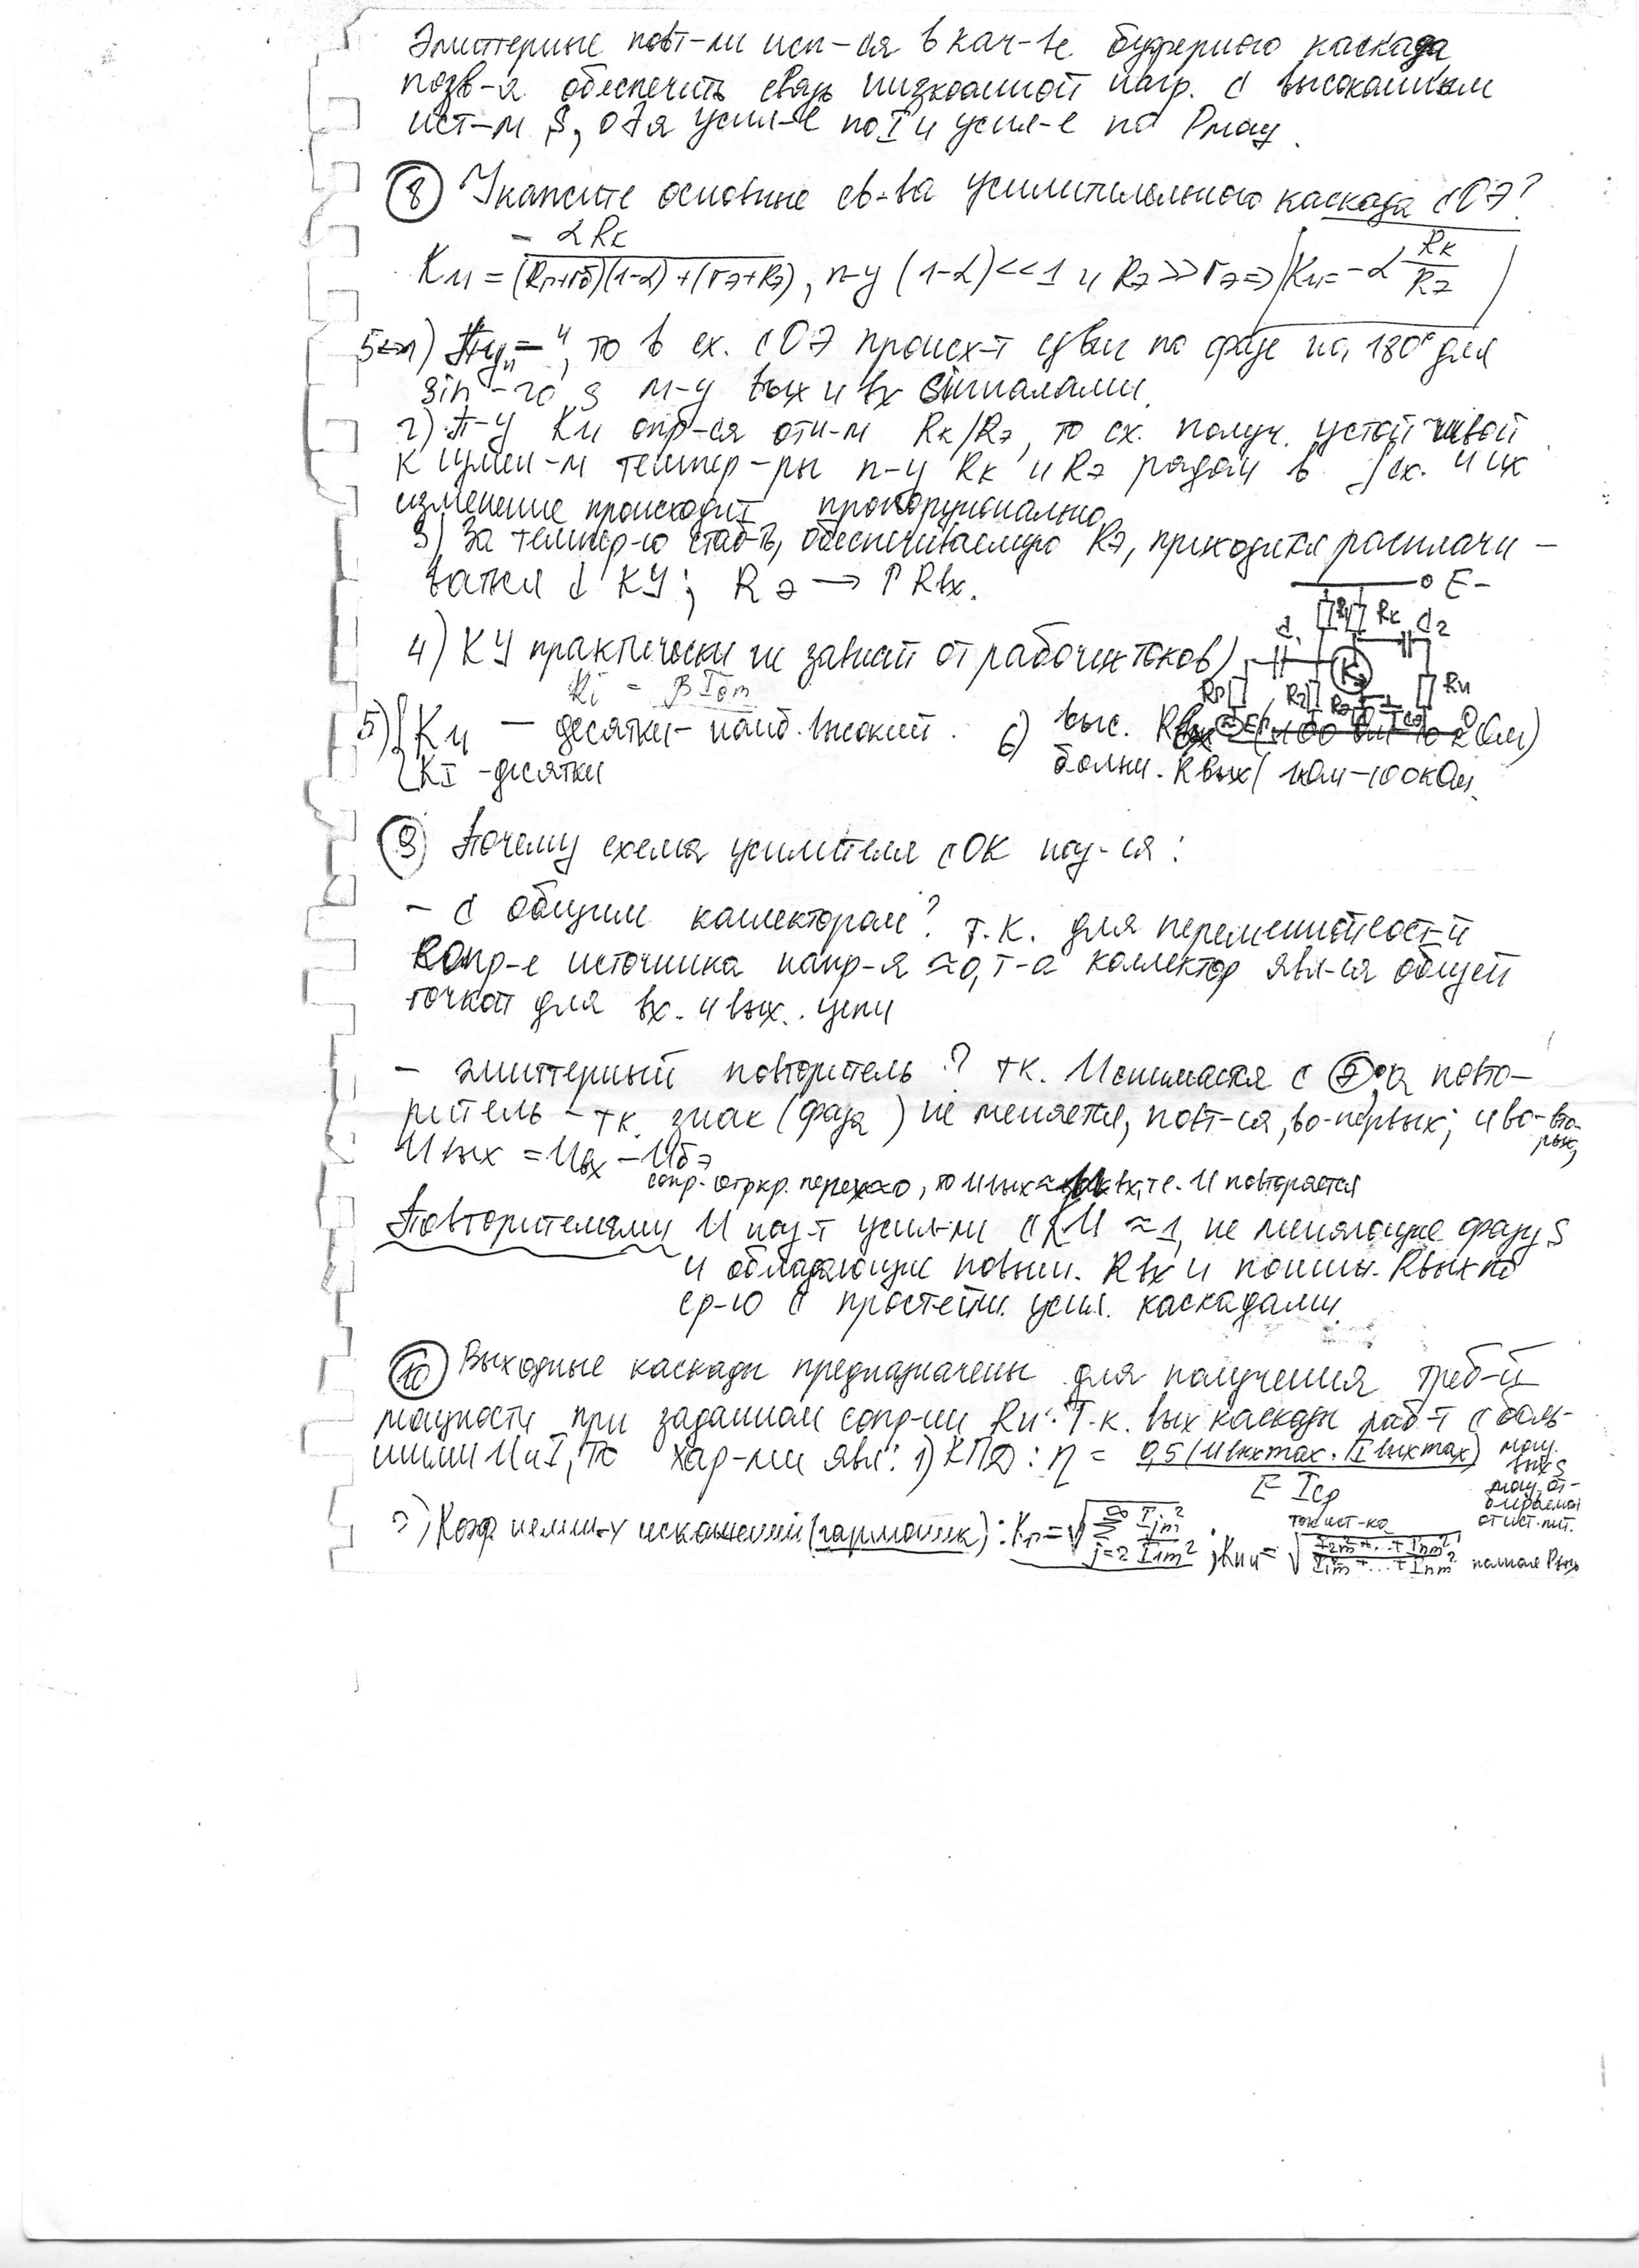 Эмиттерные повт-ли исп-ся в кач-ве буферного каскада,
позв-я обеспечить связь низкоомной нагр. с высокоомным
ист-м S, для усил-е по I и усил-е по Pмощ.
⑧ Укажите основные св-ва усилительного каскада с ОЭ?
Ku = -αRк / (Rг+rб)(1-α)+(rэ+Rэ), п-у (1-α)<<1 и Rэ>>rэ => Ku=-α Rк/Rэ
1) "-", то в сх. с ОЭ происх-т сдвиг по фазе на 180° для
sin-го S м-у вых и вх сигналами.
2) П-у Ku опр-ся отн-м Rк/Rэ, то сх. получ. устойчивой
к измен-м темпер-ры п-у Rк и Rэ рядом в сх. и их
изменение происходит пропорционально
3) За темпер-ю стаб-ть, обеспечиваемую Rэ, приходится расплачи-
ваться КУ; Rэ → ↑Rвх.
E-
Rк C2
4) КУ практически не зависит от рабочих токов)
Rг R2 Rэ Cэ Rн
Ki = βIбт
5) { Ku - десятки - наиб. высокий.
KI - десятки
6) выс. Rвх
больш. Rвых (1кОм-100кОм
⑨ Почему схема усилителя с ОК наз-ся:
- с общим коллектором? т.к. для переменной сост-й
сопр-е источника напр-я ≈0, т-а коллектор явл-ся общей
точкой для вх. и вых. цепи
- эмиттерный повторитель? тк. U снимается с Э, а повто-
ритель - тк. знак (фаза) не меняется, повт-ся, во-первых; и во-вто-
рых,
Uвых = Uвх - Uбэ
сопр. откр. перех≈0, то Uвых≈Uвх, т.е. U повторяется
Повторителями U наз-т усил-ли с KU ≈1, не меняющие фазу S
и обладающие повыш. Rвх и пониж. Rвых по
ср-ю с простейш. усил. каскадами.
⑩ Выходные каскады предназначены для получения треб-й
мощности при заданном сопр-ии Rн. Т.к. вых каскады раб-т с боль-
шими U и I, то хар-ми явл: 1) КПД: η = 0,5(Uвыхmax·Iвыхmax) / E Iср
мощ. вых S
мощ. от-
бираемая
от ист. пит.
ток ист-ка
2) Коэф нелин-х искажений (гармоник): Kг=√(∑ j=2 ∞ Ijm²/I1m²); Kни=√(I2m²+...+Inm²/I1m²+...+Inm²) полная Pвых